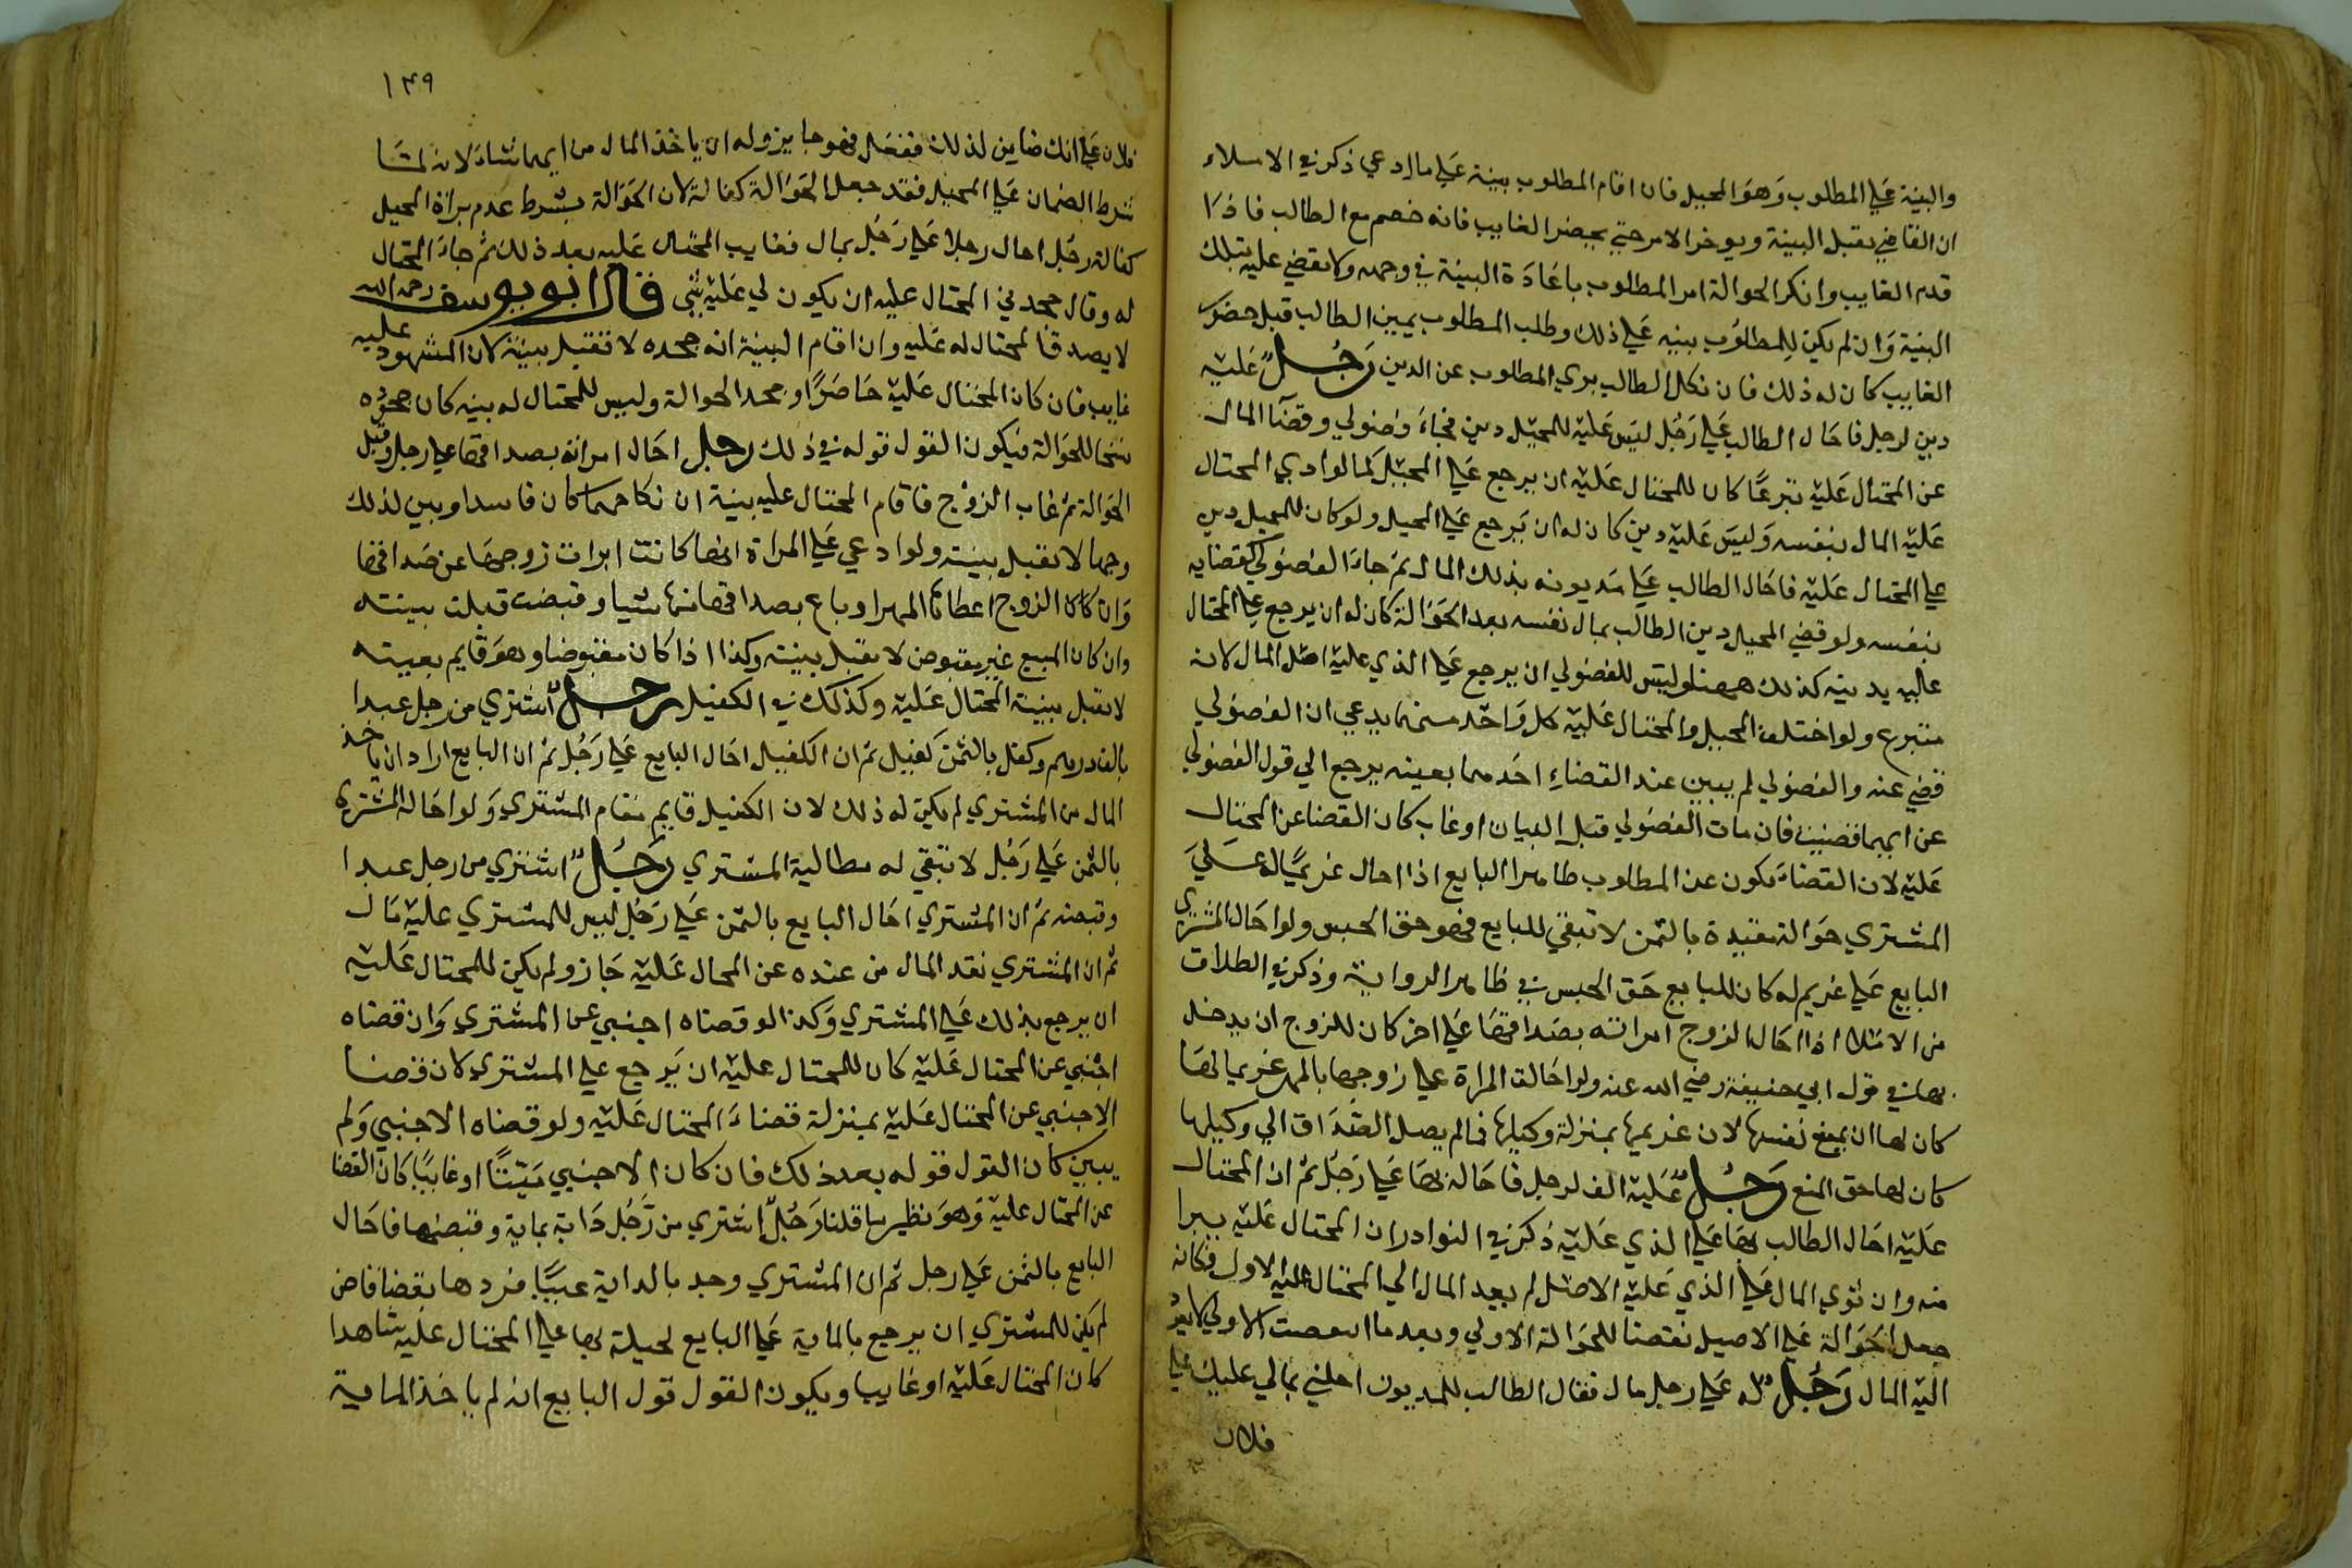 والبينة علي المطلوب وهو المحيل فان اقام المطلوب بينة علي ما ادعي ذكر في الاملاء
ان القاضي يقبل البينة ويوخر الامر حتي يحضر الغايب فانه خصم مع الطالب فاذا
قدم الغايب وانكر الحوالة امر المطلوب باعادة البينة في وجهه ولا يقضي عليه بتلك
البينة وان لم يكن للمطلوب بينه علي ذلك وطلب المطلوب يمين الطالب قبل حضور
الغايب كان له ذلك فان نكل الطالب بري المطلوب عن الدين رجل عليه
دين لرجل فاحال الطالب علي رجل ليس عليه للمحيل دين فجاء فضولي وقضا المال
عن المحتال عليه تبرعا كان للمحتال عليه ان يرجع علي المحيل كما لو ادي المحتال
عليه المال بنفسه وليس عليه دين كان له ان يرجع علي المحيل ولو كان للمحيل دين
علي المحتال عليه فاحال الطالب علي مديونه بذلك المال ثم جاء الفضولي كقضايه
بنفسه ولو قضي المحيل دين الطالب بمال نفسه بعد الحوالة كان له ان يرجع علي المحتال
عليه بدينه كذلك ههنا وليس للفضولي ان يرجع علي الذي عليه اصل المال لانه
متبرع ولو اختلف المحيل والمحتال عليه كل واحد منهما يدعي ان الفضولي
قضي عنه والفضولي لم يبين عند القضاء احدهما بعينه يرجع الي قول الفضولي
عن ايهما قضيت فان مات الفضولي قبل البيان او غاب كان القضا عن المحتال
عليه لان القضاء يكون عن المطلوب ظاهرا البايع اذا احال غريما له علي
المشتري حوالة مقيدة بالثمن لا تبقي للبايع فهو حق الحبس ولو احال المشتري
البايع علي غريم له كان للبايع حق الحبس في ظاهر الرواية وذكر في الطلاق
من الاملا اذا احال الزوج امراته بصداقها علي اخر كان للزوج ان يدخل
بها في قول ابي حنيفة رضي الله عنه ولو احالت المراة علي زوجها بالمهر غريما لها
كان لها ان تمنع نفسها لان غريمها بمنزلة وكيلها فما لم يصل الصداق الي وكيلها
كان لها حق المنع رجل عليه الف لرجل فاحاله بها علي رجل ثم ان المحتال
عليه احال الطالب بها علي الذي عليه ذكر في النوادر ان المحتال عليه يبرا
منه وان توي المال علي الذي عليه الاصل لم يعد المال الي المحتال عليه الاول فكانه
جعل الحوالة علي الاصيل نقضا للحوالة الاولي وبعد ما انتقضت الاولي لا يعود
اليه المال رجل له علي رجل مال فقال الطالب للمديون احلني بمالي عليك علي
فلان
١٤٩
فلان علي انك ضامن لذلك ففعل فهو جايز وله ان ياخذ المال من ايهما شاء لانه لما
شرط الضمان علي المحيل فقد جعل الحوالة كفالة لان الحوالة بشرط عدم براة المحيل
كفالة رجل احال رجلا علي رجل بمال فغايب المحتال عليه بعد ذلك ثم جاء المحتال
له وقال جحدني المحتال عليه ان يكون لي عليه شي قال ابو يوسف رحمه الله
لا يصدق المحتال له عليه وان اقام البينة انه جحده لا تقبل بينته لان المشهود عليه
غايب فان كان المحتال عليه حاضرا وجحد الحوالة وليس للمحتال له بينه كان جحوده
فسخا للحوالة فيكون القول قوله في ذلك رجل احال امراته بصداقها علي رجل وقبل
الحوالة ثم غاب الزوج فاقام المحتال عليه بينة ان نكاحهما كان فاسدا وبين لذلك
وجها لا تقبل بينته ولو ادعي علي المراة انها كانت ابرات زوجها عن صداقها
وان كان الزوج اعطاها المهر او باع بصداقها منها شيا وقبضت قبلت بينته
وان كان المبيع غير مقبوض لا تقبل بينته وكذا اذا كان مقبوضا وهو قايم بعينه
لا تقبل بينة المحتال عليه وكذلك في الكفيل رجل اشتري من رجل عبدا
بالف درهم وكفل بالثمن كفيل ثم ان الكفيل احال البايع علي رجل ثم ان البايع اراد ان ياخذ
المال من المشتري لم يكن له ذلك لان الكفيل قايم مقام المشتري ولو احاله المشتري
بالثمن علي رجل لا تبقي له مطالبة المشتري رجل اشتري من رجل عبدا
وقبضه ثم ان المشتري احال البايع بالثمن علي رجل ليس للمشتري عليه مال
ثم ان المشتري نقد المال من عنده عن المحال عليه جاز ولم يكن للمحتال عليه
ان يرجع بذلك علي المشتري وكذا لو قضاه اجنبي عن المشتري وان قضاه
اجنبي عن المحتال عليه كان للمحتال عليه ان يرجع علي المشتري لان قضا
الاجنبي عن المحتال عليه بمنزلة قضاء المحتال عليه ولو قضاه الاجنبي ولم
يبين كان القول قوله بعد ذلك فان كان الاجنبي ميتا او غايبا كان القضا
عن المحتال عليه وهو نظير ما قلنا رجل اشتري من رجل دابة بماية وقبضها فاحال
البايع بالثمن علي رجل ثم ان المشتري وجد بالدابة عيبا فردها بقضا قاض
لم يكن للمشتري ان يرجع بالماية علي البايع لحيلة بها علي المحتال عليه شاهدا
كان المحتال عليه او غايبا ويكون القول قول البايع انه لم ياخذ الماية